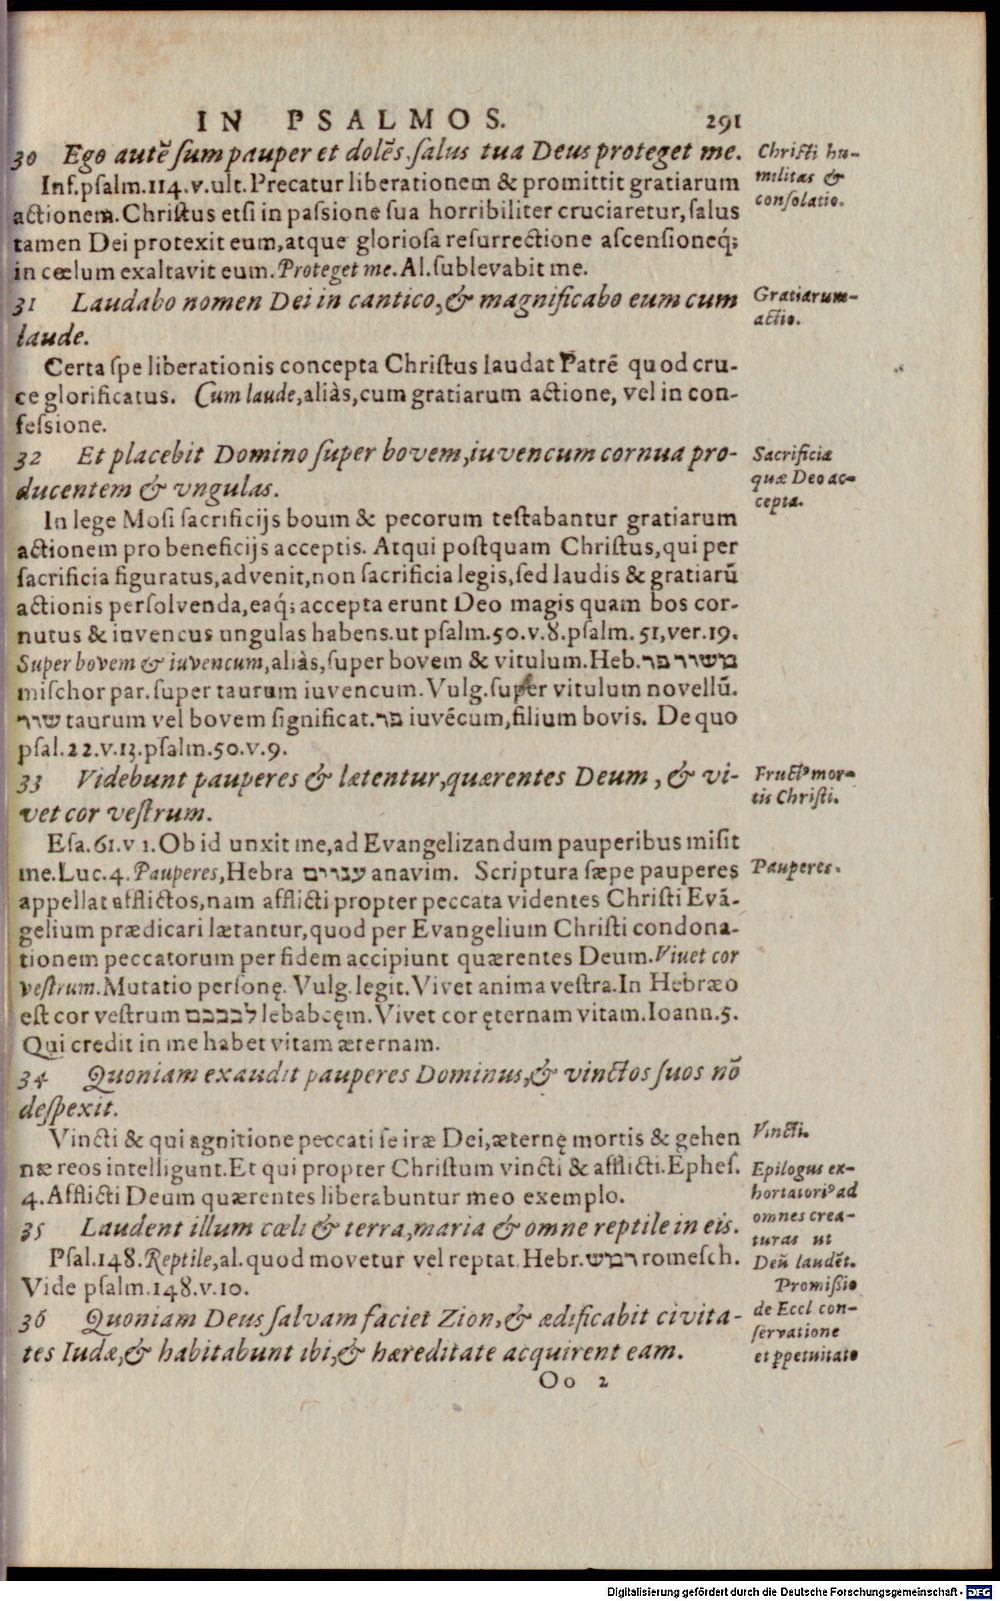 IN PSALMOS. 291
30 Ego autē ſum pauper et dolēs, ſalus tua Deus proteget me.
Chriſti hu-
militas &
conſolatio.
Inf. pſalm. 114. v. ult. Precatur liberationem & promittit gratiarum
actionem. Chriſtus etſi in paſsione ſua horribiliter cruciaretur, ſalus
tamen Dei protexit eum, atque glorioſa reſurrectione aſcenſioneq;
in cœlum exaltavit eum. Proteget me. Al. ſublevabit me.
31 Laudabo nomen Dei in cantico, & magnificabo eum cum
laude.
Gratiarum-
actio.
Certa ſpe liberationis concepta Chriſtus laudat Patrē quod cru-
ce glorificatus. Cum laude, aliàs, cum gratiarum actione, vel in con-
feſsione.
32 Et placebit Domino ſuper bovem, iuvencum cornua pro-
ducentem & vngulas.
Sacrificia
quæ Deo ac-
cepta.
In lege Moſi ſacrificijs boum & pecorum teſtabantur gratiarum
actionem pro beneficijs acceptis. Atqui poſtquam Chriſtus, qui per
ſacrificia figuratus, advenit, non ſacrificia legis, ſed laudis & gratiarū
actionis perſolvenda, eaq; accepta erunt Deo magis quam bos cor-
nutus & iuvencus ungulas habens. ut pſalm. 50. v. 8. pſalm. 51, ver. 19.
Super bovem & iuvencum, aliàs, ſuper bovem & vitulum. Heb. משורר פר
miſchor par. ſuper taurum iuvencum. Vulg. ſuper vitulum novellū.
שורר taurum vel bovem ſignificat. פר iuvēcum, filium bovis. De quo
pſal. 22. v. 13. pſalm. 50. v. 9.
33 Videbunt pauperes & lætentur, quærentes Deum, & vi-
vet cor veſtrum.
Fruct9 mor-
tis Chriſti.
Eſa. 61. v 1. Ob id unxit me, ad Evangelizandum pauperibus miſit
me. Luc. 4. Pauperes, Hebra ענוים anavim. Scriptura ſæpe pauperes
Pauperes.
appellat afflictos, nam afflicti propter peccata videntes Chriſti Evā-
gelium prædicari lætantur, quod per Evangelium Chriſti condona-
tionem peccatorum per fidem accipiunt quærentes Deum. Vivet cor
veſtrum. Mutatio perſonę. Vulg. legit. Vivet anima veſtra. In Hebræo
eſt cor veſtrum לבבכם lebabcęm. Vivet cor ęternam vitam. Ioann. 5.
Qui credit in me habet vitam æternam.
34 Quoniam exaudit pauperes Dominus, & vinctos ſuos nō
deſpexit.
Vincti & qui agnitione peccati ſe iræ Dei, æternę mortis & gehen
Vincti.
næ reos intelligunt. Et qui propter Chriſtum vincti & afflicti. Epheſ.
4. Afflicti Deum quærentes liberabuntur meo exemplo.
35 Laudent illum cœli & terra, maria & omne reptile in eis.
Epilogus ex-
hortatori9 ad
omnes crea-
turas ut
Deū laudēt.
Pſal. 148. Reptile, al. quod movetur vel reptat. Hebr. רמש romeſch.
Vide pſalm. 148. v. 10.
36 Quoniam Deus ſalvam faciet Zion, & ædificabit civita-
tes Iudæ, & habitabunt ibi, & hæreditate acquirent eam.
Promiſsio
de Eccl con-
ſervatione
et ꝑpetuitate
Oo 2
Digitalisierung gefördert durch die Deutsche Forschungsgemeinschaft - DFG